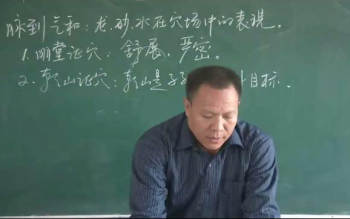 脉到气和：龙.砂.水在穴场中的表现.
1.明堂证穴：舒展、严密.
2.乐山证穴：乐山是 目标.